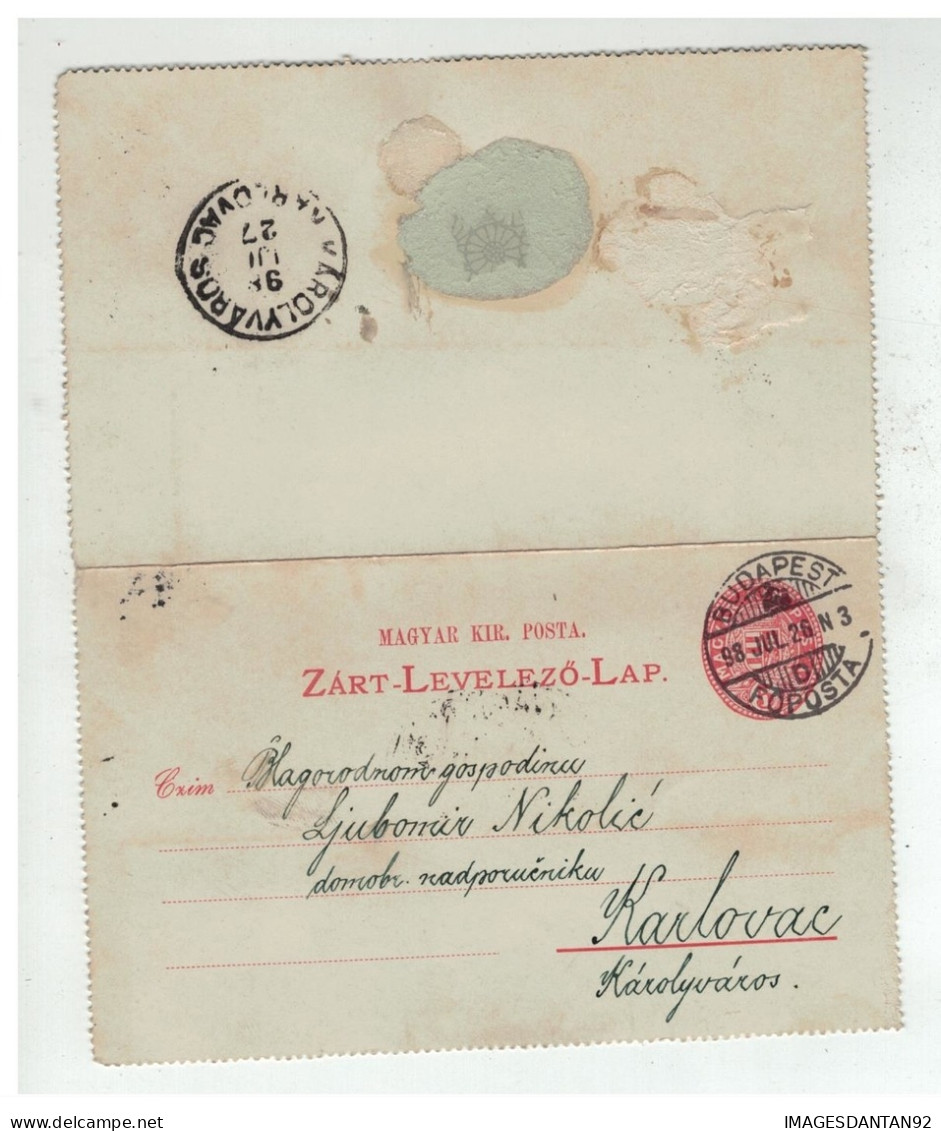 KÁROLYVÁROS KARLOVAC
98
JUL
27
BUDAPEST
98 JUL. 26 N 3
FŐPOSTA
MAGYAR KIR. POSTA.
ZÁRT-LEVELEZŐ-LAP.
Czim Blagorodnom gospodinu
Ljubomir Nikolić
domobr. nadporučniku
Karlovac
Károlyváros.
IMAGESDANTAN92